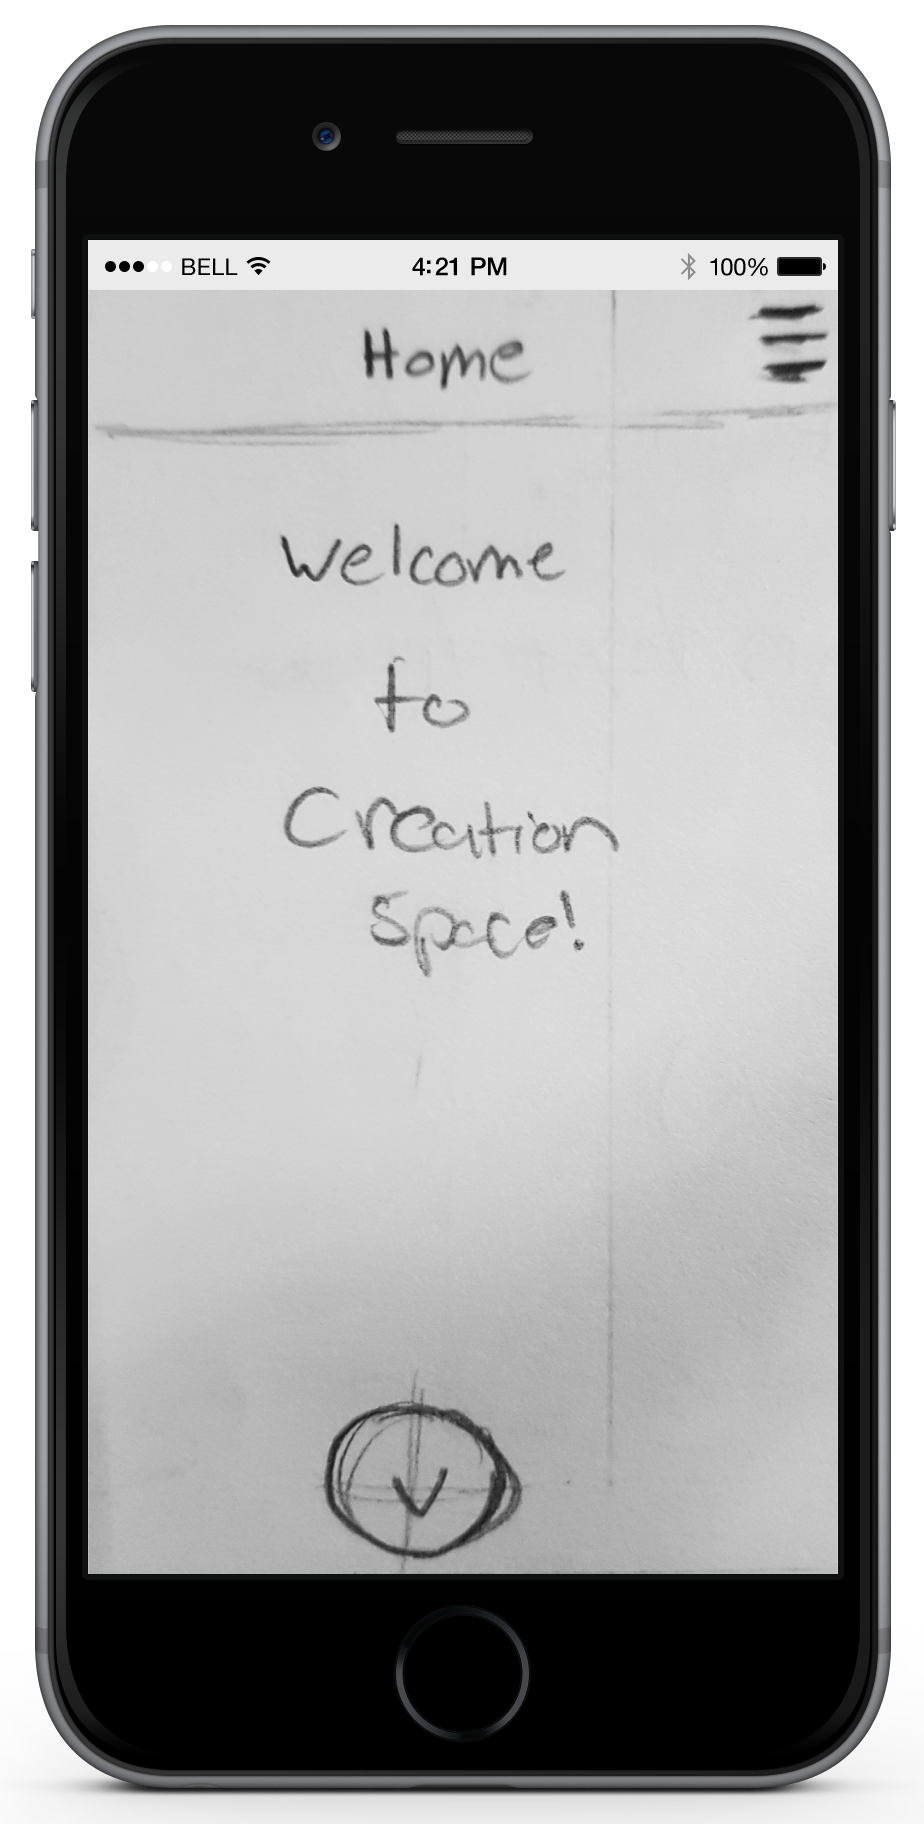 BELL 4:21 PM 100%
Home
Welcome
to
Creation
Space!